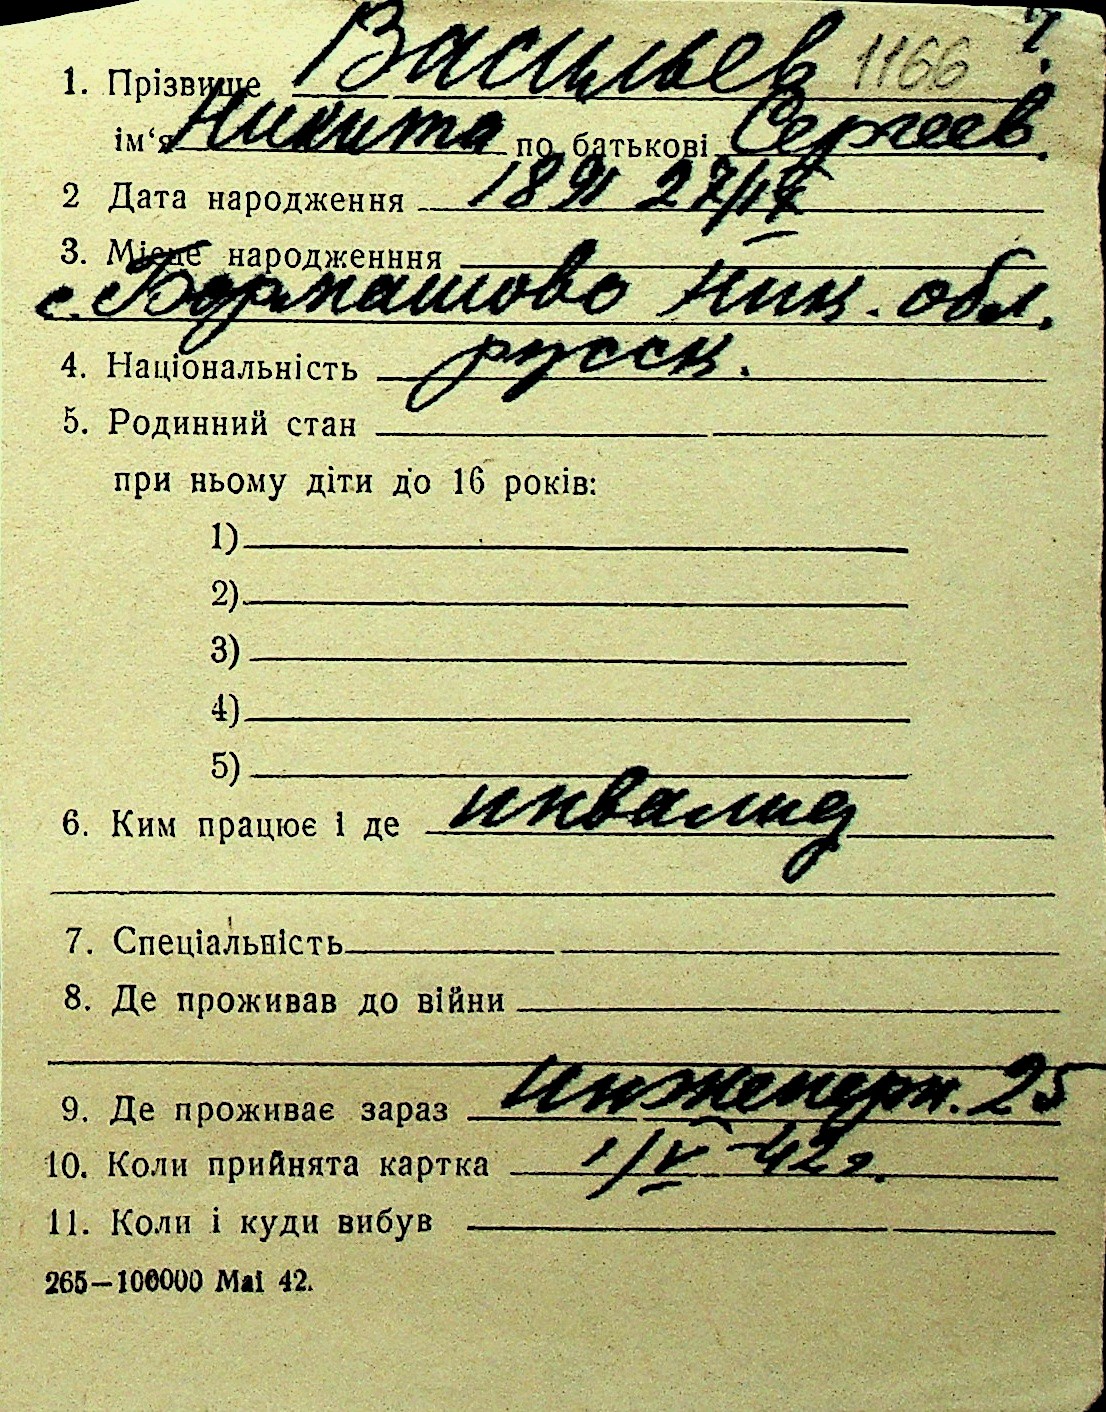 1. Прізвище Васильев 1166
ім‘я Никита по батькові Сергеев.
2 Дата народження 1891 27/IV
3. Місце народженння
с. Бармашово Ник. обл.
4. Національність русск.
5. Родинний стан
при ньому діти до 16 років:
1)
2)
3)
4)
5)
6. Ким працює і де инвалид
7. Спеціальність
8. Де проживав до війни
9. Де проживає зараз Инженерн. 25
10. Коли прийнята картка 1/V 42г.
11. Коли і куди вибув
265—100000 Mai 42.